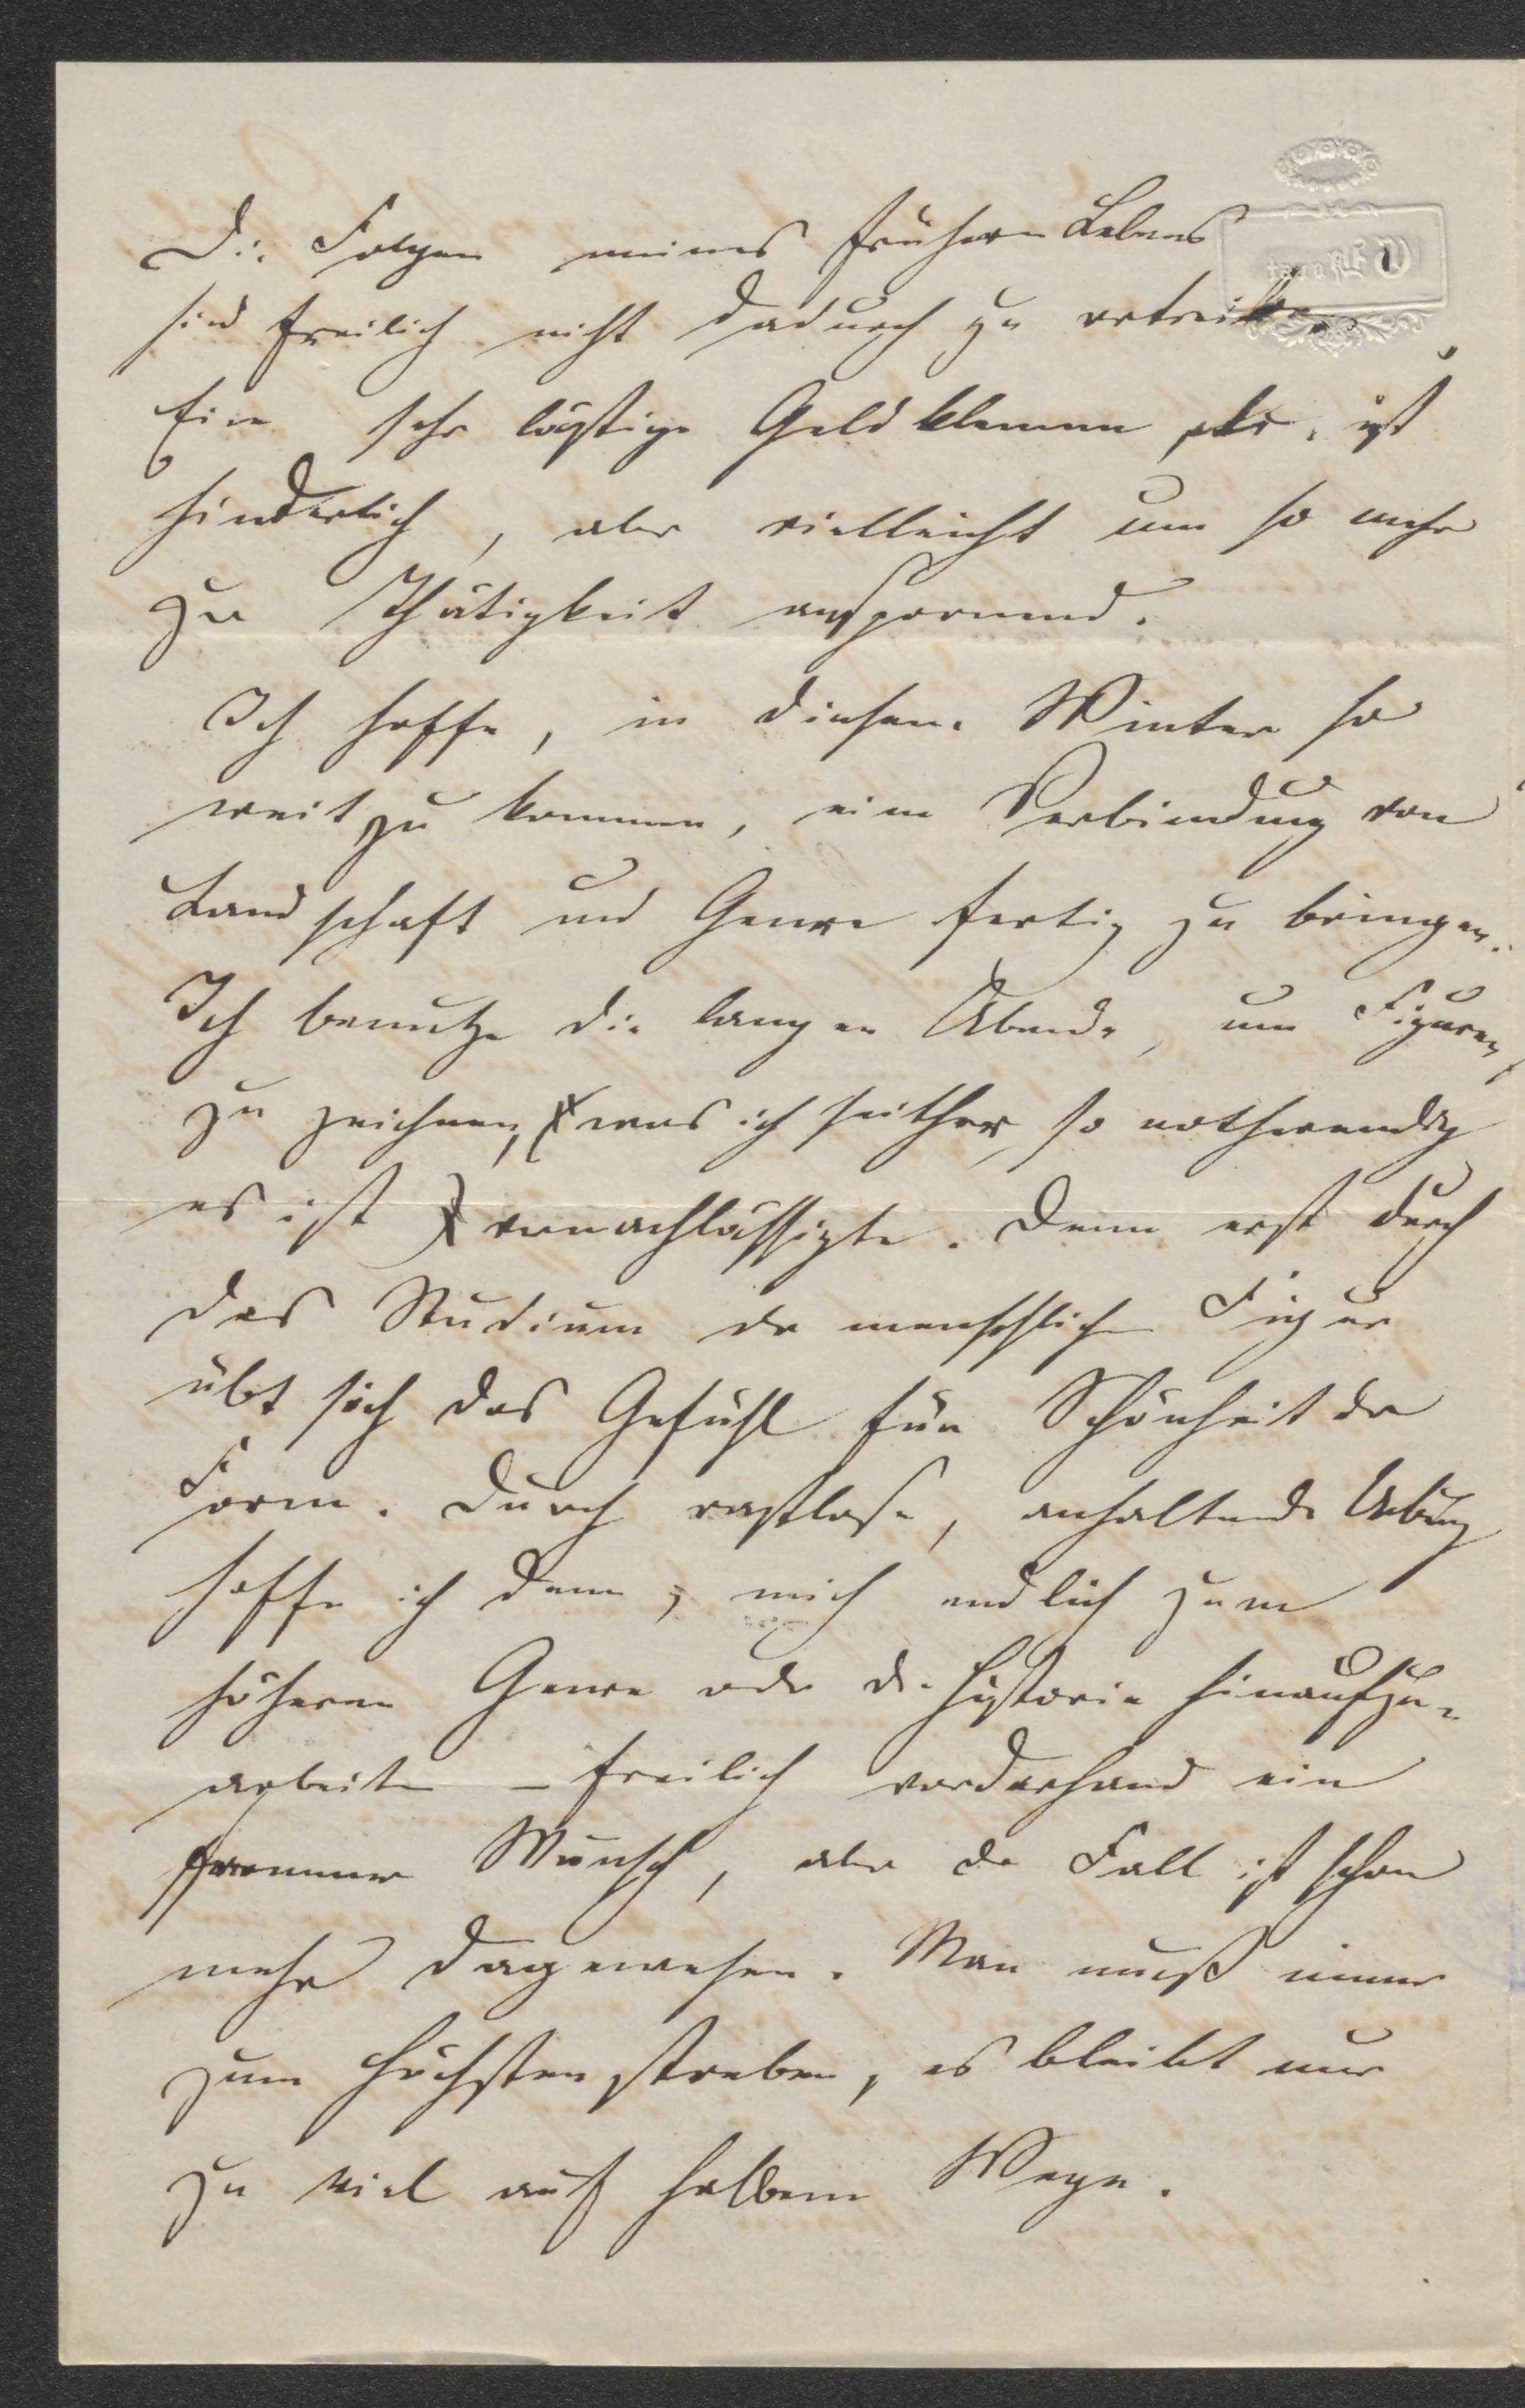 Die Folgen meines frühern Lebens
sind freilich nicht dadurch zu
Eine sehr lästige Geldklemme ist
hinderlich, aber vielleicht um so mehr
zur Thätigkeit anspornend.
Ich hoffe, in diesem Winter so
weit zu kommen, eine Verbindung von
Landschaft und Genre fertig zu bringen.
Ich benutze die langen Abende, um Figuren
zu zeichnen, was ich seither, so nothwendig
es ist vernachlässigte. Denn erst durch
das Studium der menschlichen Figur
übt sich das Gefühl für Schönheit der
Form. Durch rastlose, anhaltende Uebung
hoffe ich denn, mich endlich zum
höheren Genre oder der Historie hinaufzu-
arbeiten – freilich vorderhand ein
frommer Wunsch, aber der Fall ist schon
mehr dagewesen. Man muß immer
zum Höchsten streben, es bleibt nur
zu viel auf halbem Wege.